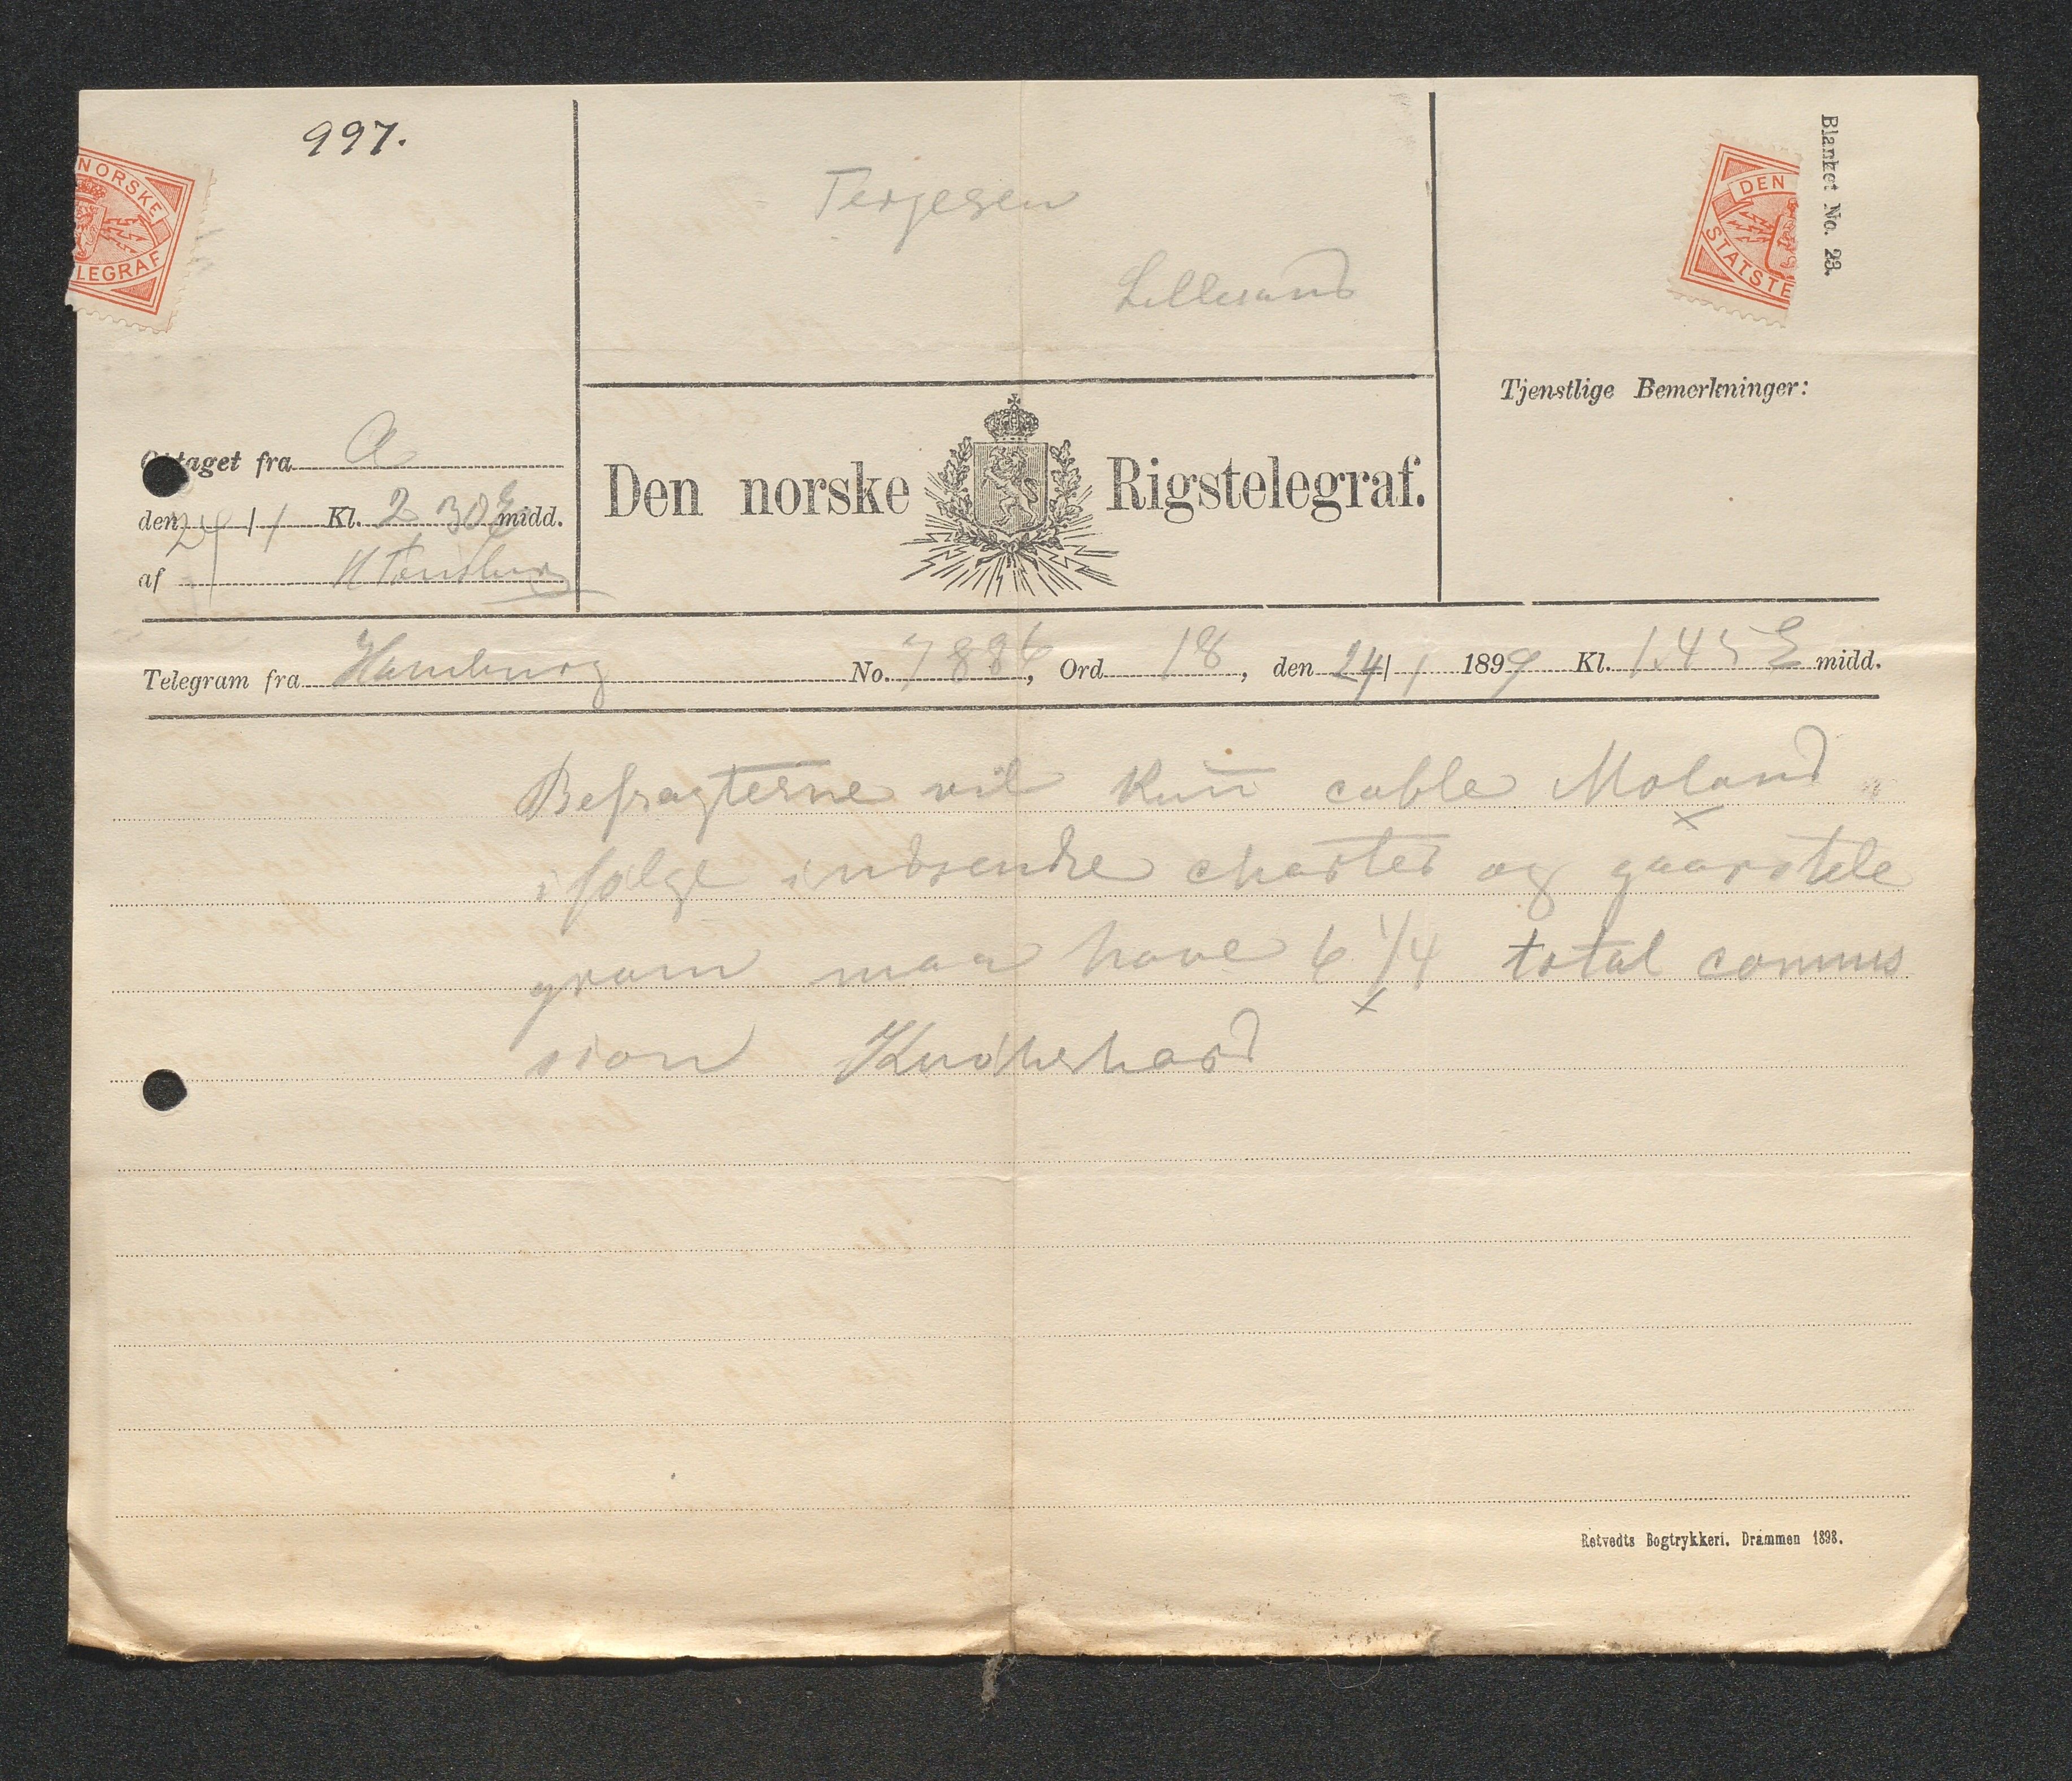 997.
NORSKE
LEGRAF
Terjesen
Lillesand
DEN
STATSTE
Blanket No. 23.
Tjenstlige Bemerkninger:
Optaget fra A
den 24/1 Kl. 2 30 E midd.
af
Den norske Rigstelegraf.
Telegram fra Hamburg No. 7884, Ord 18, den 24/1 1899 Kl. 1.45 E midd.
Befragterne vil kun cable Moland
ifølge indsendte charter og gaarstele
gram maa have 6 1/4 total commis
sion Knöhrhard
Retvedts Bogtrykkeri. Drammen 1898.